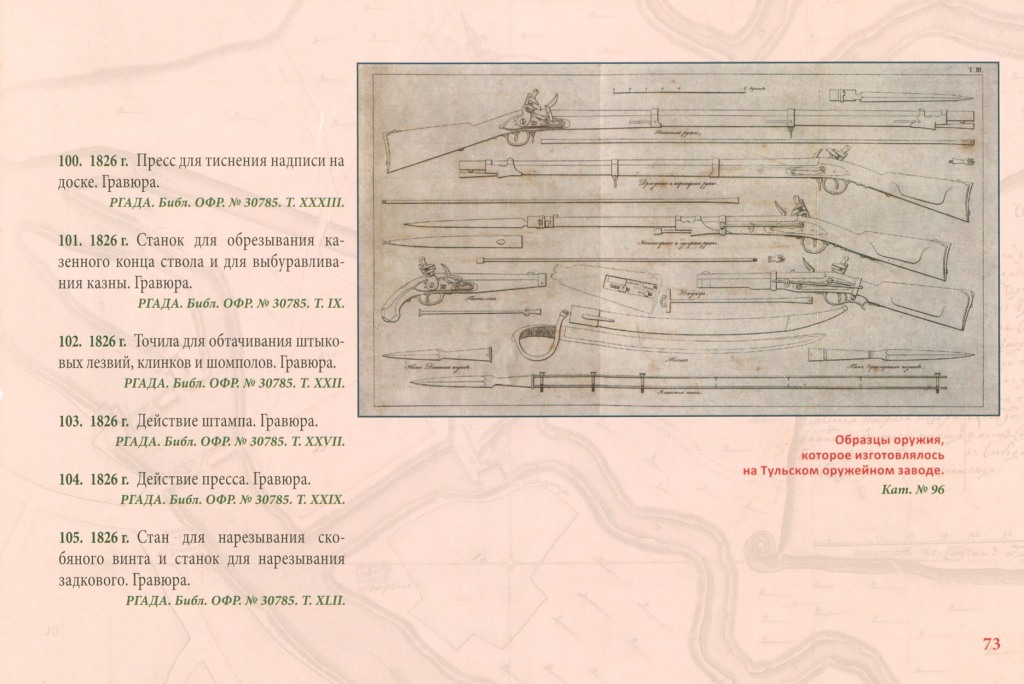 100. 1826 г. Пресс для тиснения надписи на
доске. Гравюра.
РГАДА. Библ. ОФР. № 30785. Т. XXXIII.
101. 1826 г. Станок для обрезывания ка-
зенного конца ствола и для выбуравлива-
ния казны. Гравюра.
РГАДА. Библ. ОФР. № 30785. Т. IX.
102. 1826 г. Точила для обтачивания штыко-
вых лезвий, клинков и шомполов. Гравюра.
РГАДА. Библ. ОФР. № 30785. Т. XXII.
103. 1826 г. Действие штампа. Гравюра.
РГАДА. Библ. ОФР. № 30785. Т. XXVII.
104. 1826 г. Действие пресса. Гравюра.
РГАДА. Библ. ОФР. № 30785. Т. XXIX.
105. 1826 г. Стан для нарезывания ско-
бяного винта и станок для нарезывания
задкового. Гравюра.
РГАДА. Библ. ОФР. № 30785. Т. XLII.
Т. III.
Образцы оружия,
которое изготовлялось
на Тульском оружейном заводе.
Кат. № 96
73